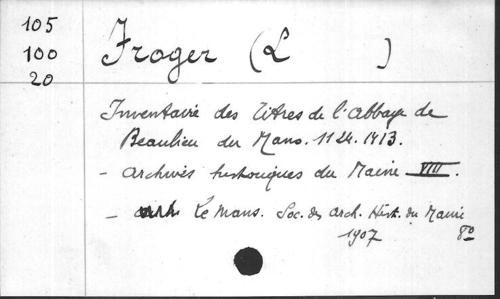 105
100
20
Froger (L )
Inventaire des titres de l'abbaye de
Beaulieu du Mans. 1124. 1413.
- Archives historiques du Maine VIII.
- Le Mans. Soc. des Arch. Hist. du Maine
1907 8º